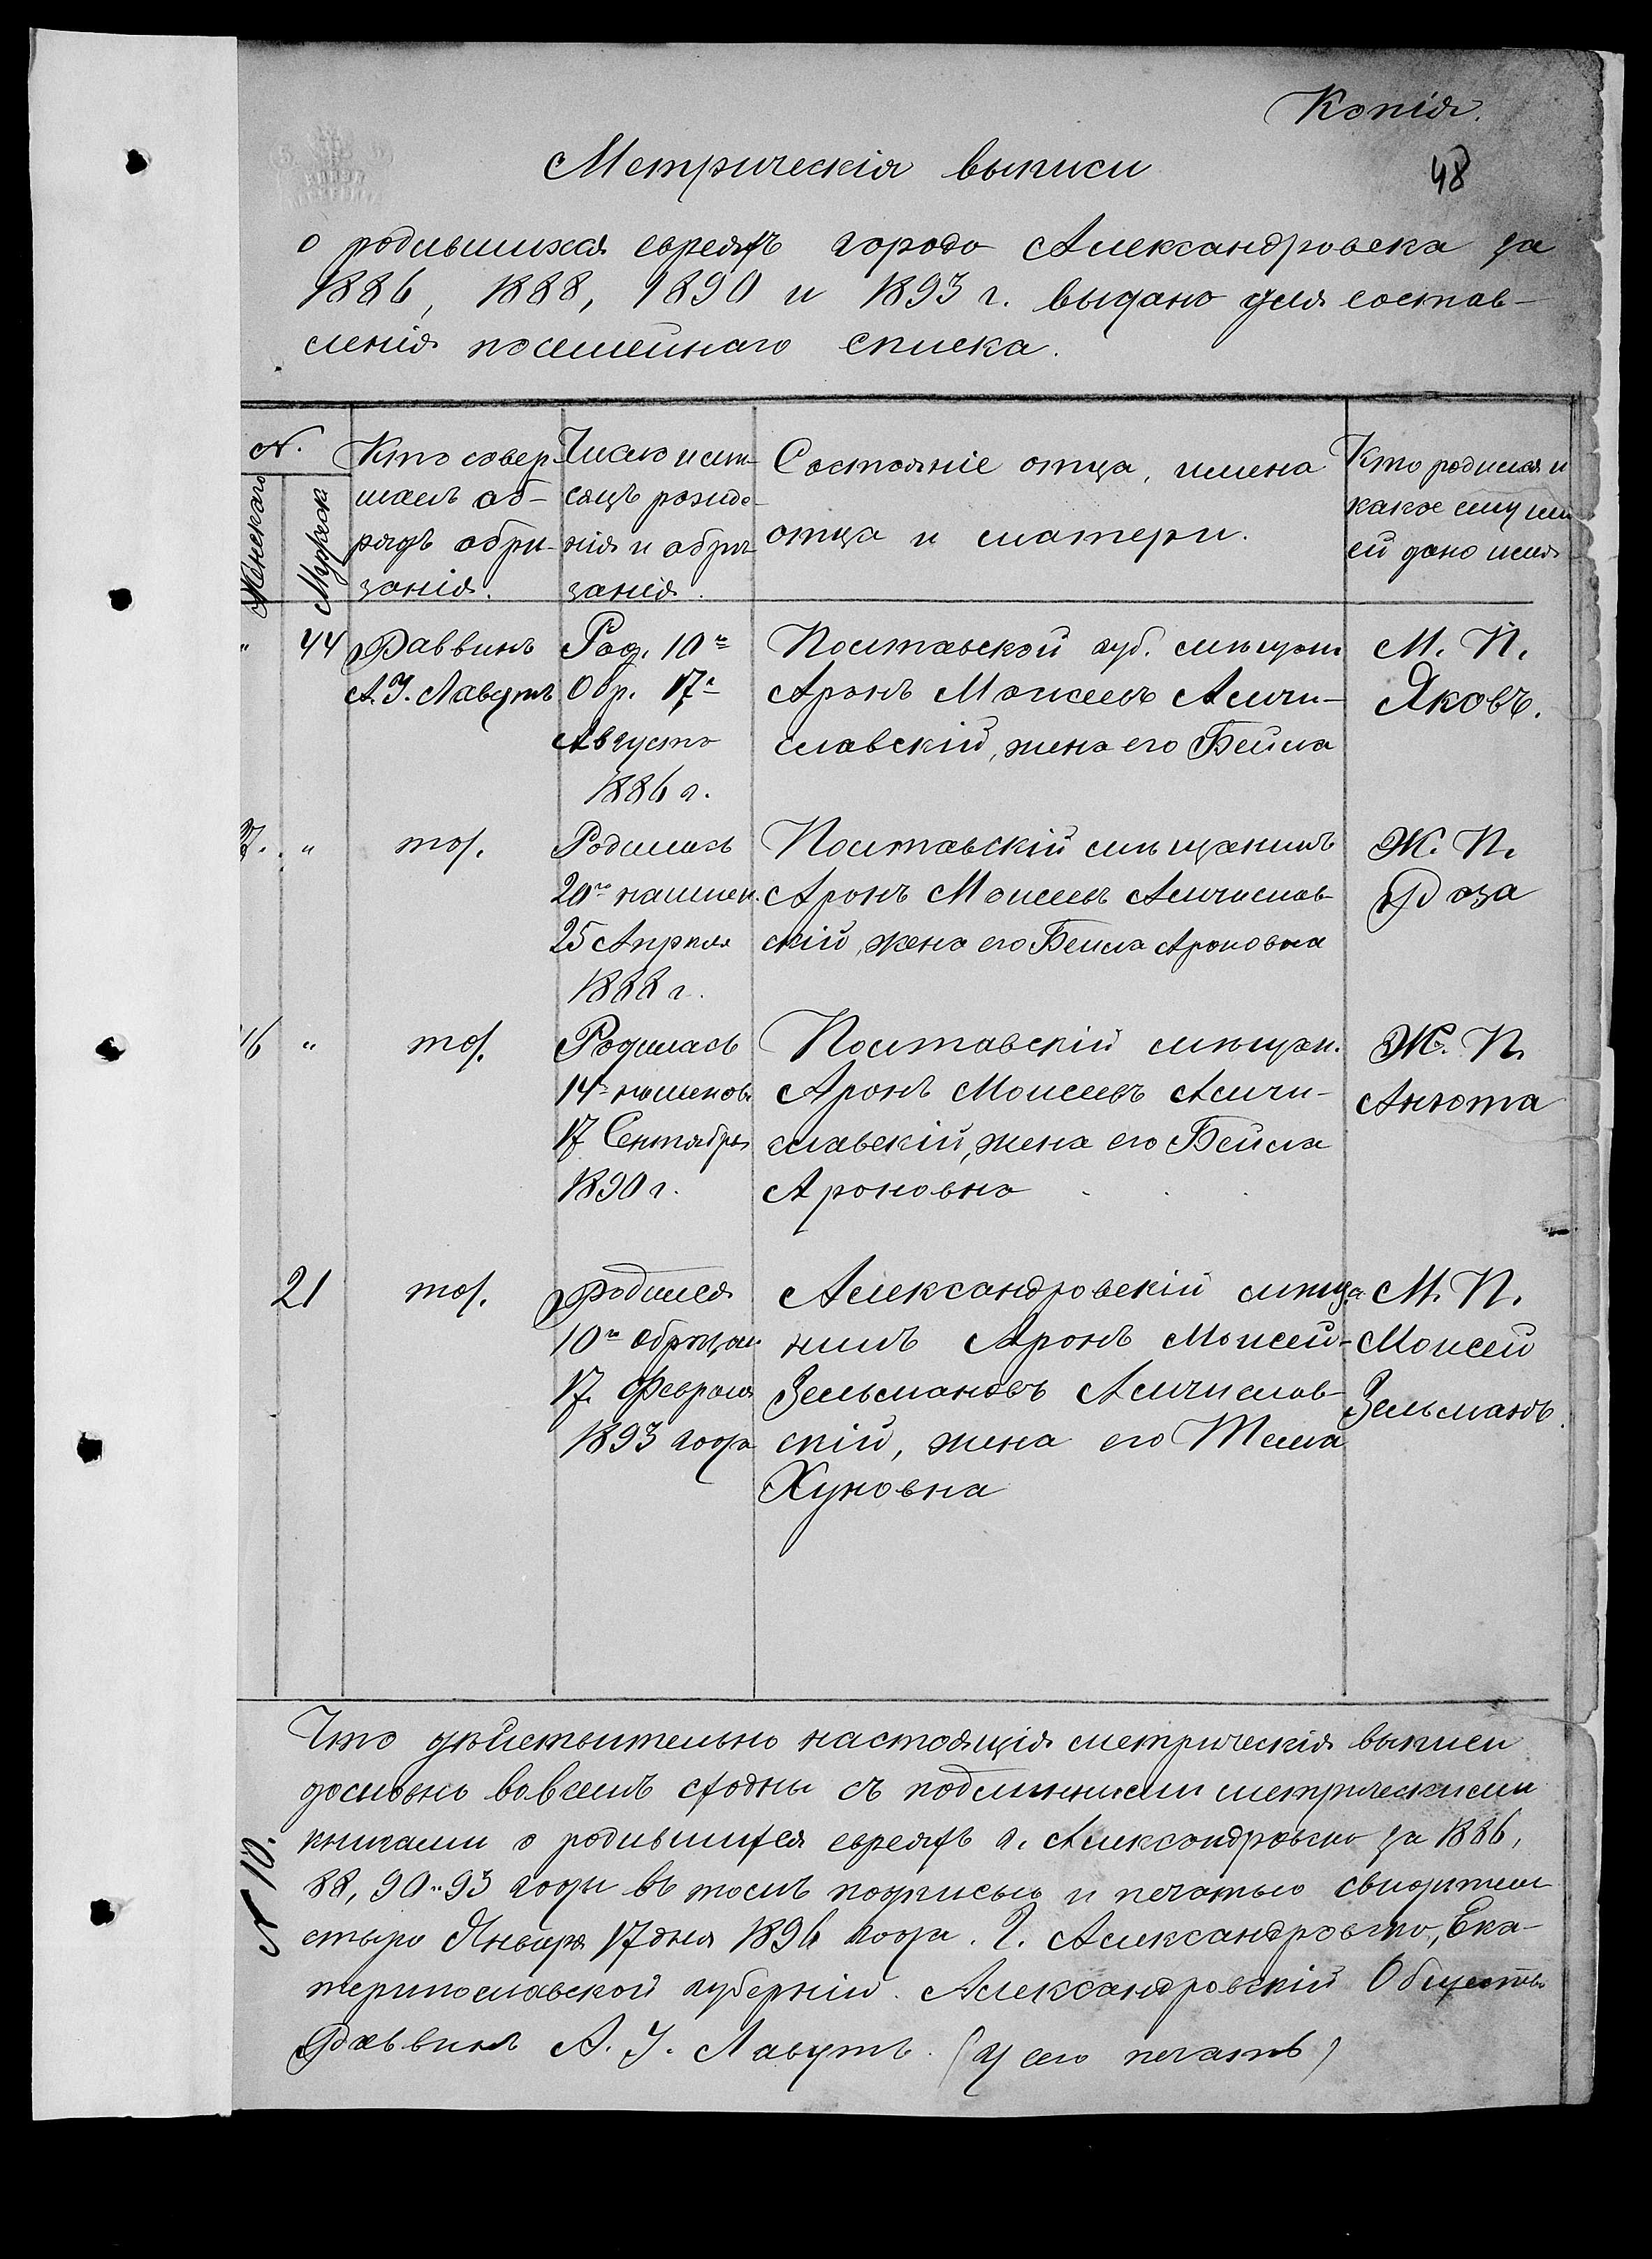 Копія.
48
Метрическія выписи
о родившихся евреяхъ города Александровска за
1886, 1888, 1890 и 1893 г. выдано для состав-
ленія посемейнаго списка.
N.
Женскаго
Мужеск
Кто совер-
шалъ об-
рядъ обрѣ-
занія.
Число и мѣ-
сяцъ рожде-
нія и обрѣ-
занія.
Состояніе отца, имена
отца и матери.
Кто родился и
какое ему или
ей дано имя
" 44
Раввинъ
А. У. Лавутъ
Род. 10го
Обр. 17го
Августа
1886 г.
Полтавской губ. мѣщан.
Аронъ Моисеевъ Амчи-
славскій, жена его Бейла
М. П.
Яковъ.
7. "
тож.
Родилась
20го наимен.
25 Апрѣля
1888 г.
Полтавскій мѣщанинъ
Аронъ Моисеевъ Амчислав-
скій, жена его Бейла Ароновна
Ж. П.
Роза
16 "
тож.
Родилась
14го наименов.
17 Сентября
1890 г.
Полтавскій мѣщан.
Аронъ Моисеевъ Амчи-
славскій, жена его Бейла
Ароновна
Ж. П.
Анюта
21
тож.
Родился
10го обрѣзан
17 Февраля
1893 года
Александровскій мѣща-
нинъ Аронъ Моисей-
Зельмановъ Амчислав-
скій, жена его
Хуновна
М. П.
Моисей
Зельманъ.
N 10.
Что дѣйствительно настоящія метрическія выписи
дословно вовсемъ сходны съ подлинными метрическими
книгами о родившихся евреяхъ г. Александровска за 1886,
88, 90 и 93 годы въ томъ подписью и печатью свидѣтель-
ствую Января 17 дня 1896 года. Г. Александровскъ, Ека-
теринославской губерніи. Александровскій Обществ.
Раввинъ А. У. Лавутъ. (У сего печать)